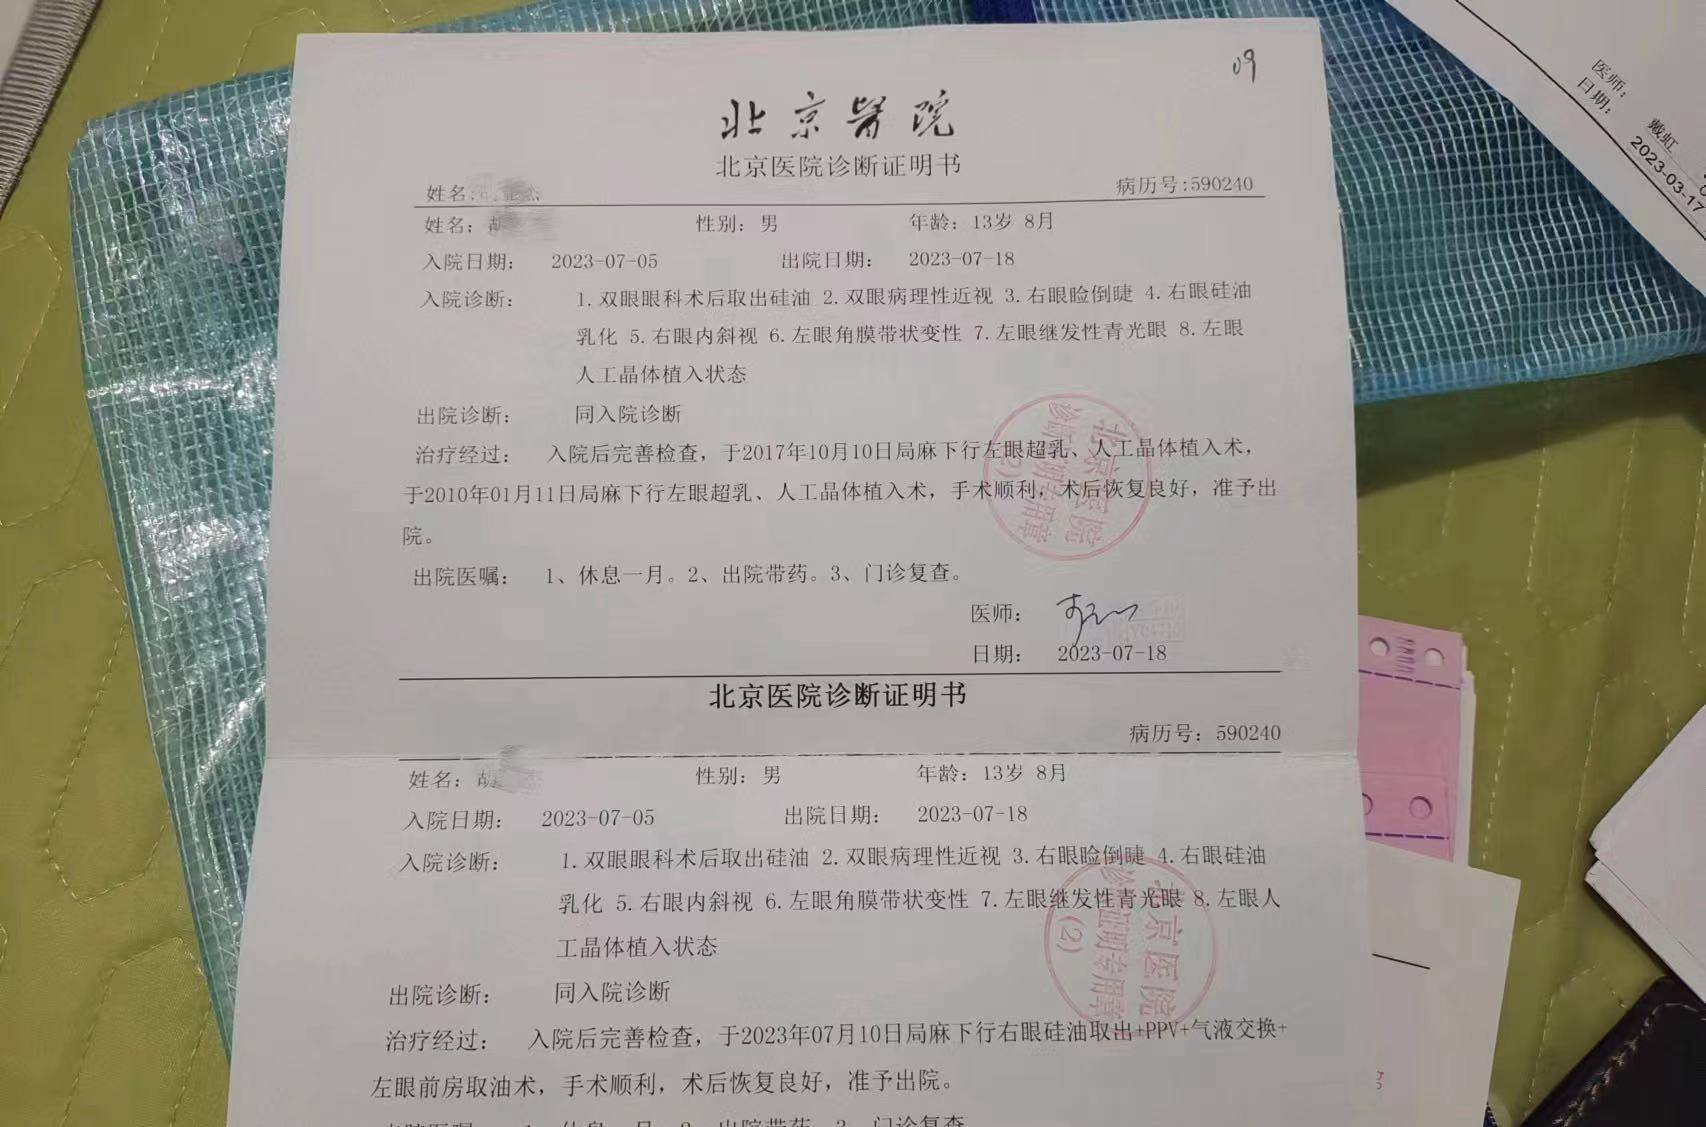 09
北京醫院
北京医院诊断证明书
姓名: 杰
病历号:590240
姓名: 胡
性别: 男
年龄: 13岁 8月
入院日期: 2023-07-05
出院日期: 2023-07-18
入院诊断: 1.双眼眼科术后取出硅油 2.双眼病理性近视 3.右眼睑倒睫 4.右眼硅油
乳化 5.右眼内斜视 6.左眼角膜带状变性 7.左眼继发性青光眼 8.左眼
人工晶体植入状态
出院诊断: 同入院诊断
治疗经过: 入院后完善检查，于2017年10月10日局麻下行左眼超乳、人工晶体植入术，
于2010年01月11日局麻下行左眼超乳、人工晶体植入术，手术顺利，术后恢复良好，准予出
院。
出院医嘱: 1、休息一月。2、出院带药。3、门诊复查。
医师:
日期: 2023-07-18
北京医院
诊断证明专用章
(2)
北京医院诊断证明书
病历号: 590240
姓名: 胡
性别: 男
年龄: 13岁 8月
入院日期: 2023-07-05
出院日期: 2023-07-18
入院诊断: 1.双眼眼科术后取出硅油 2.双眼病理性近视 3.右眼睑倒睫 4.右眼硅油
乳化 5.右眼内斜视 6.左眼角膜带状变性 7.左眼继发性青光眼 8.左眼人
工晶体植入状态
出院诊断: 同入院诊断
治疗经过: 入院后完善检查，于2023年07月10日局麻下行右眼硅油取出+PPV+气液交换+
左眼前房取油术，手术顺利，术后恢复良好，准予出院。
北京医院
诊断证明专用章
(2)
出院医嘱: 1、休息一月。2、出院带药。3、门诊复查
医师:
戴虹
日期:
2023-03-17